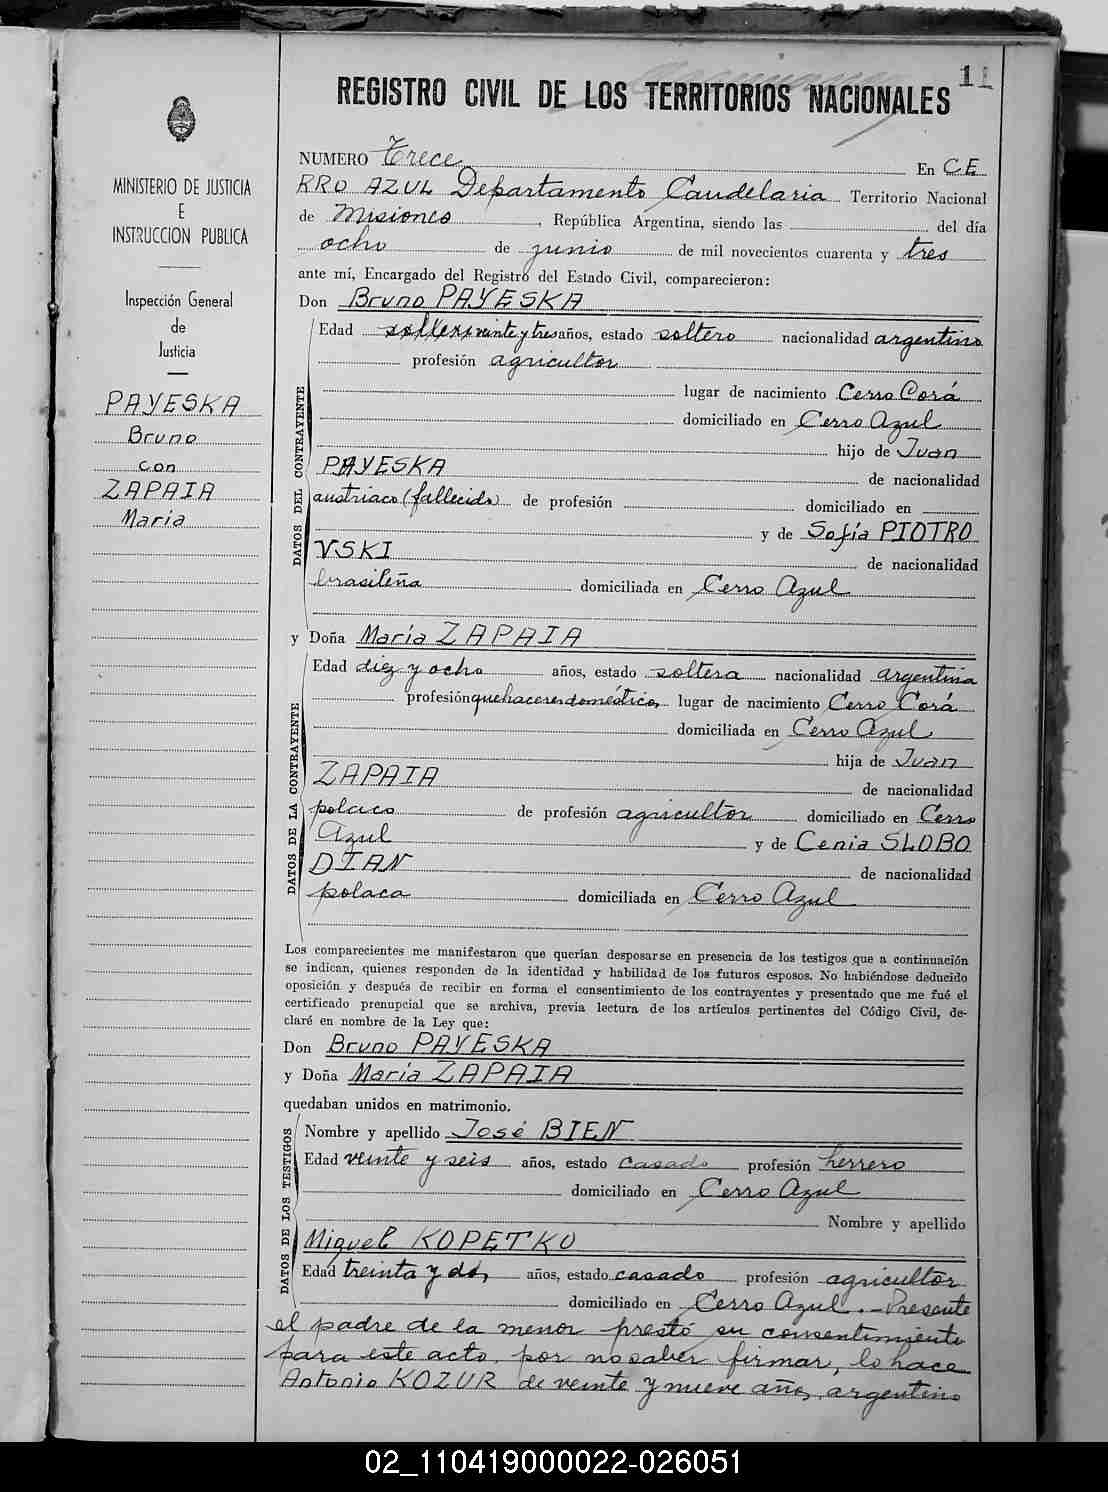 11
REGISTRO CIVIL DE LOS TERRITORIOS NACIONALES
MINISTERIO DE JUSTICIA
E
INSTRUCCION PUBLICA
Inspección General
de
Justicia
PAYESKA
Bruno
con
ZAPAIA
Maria
NUMERO Trece En CE
RRO AZUL Departamento Candelaria Territorio Nacional
de Misiones, República Argentina, siendo las del día
ocho de junio de mil novecientos cuarenta y tres
ante mí, Encargado del Registro del Estado Civil, comparecieron:
Don Bruno PAYESKA
DATOS DEL CONTRAYENTE
Edad veinte y tres años, estado soltero nacionalidad argentino
profesión agricultor
lugar de nacimiento Cerro Corá
domiciliado en Cerro Azul
hijo de Juan
PAYESKA de nacionalidad
austriaco (fallecido) de profesión domiciliado en
y de Sofía PIOTRO
VSKI de nacionalidad
brasileña domiciliada en Cerro Azul
y Doña María ZAPAIA
DATOS DE LA CONTRAYENTE
Edad diez y ocho años, estado soltera nacionalidad argentina
profesión quehaceres domésticos lugar de nacimiento Cerro Corá
domiciliada en Cerro Azul
hija de Juan
ZAPAIA de nacionalidad
polaco de profesión agricultor domiciliado en Cerro
Azul y de Cenia SLOBO
DIAN de nacionalidad
polaca domiciliada en Cerro Azul
Los comparecientes me manifestaron que querían desposarse en presencia de los testigos que a continuación
se indican, quienes responden de la identidad y habilidad de los futuros esposos. No habiéndose deducido
oposición y después de recibir en forma el consentimiento de los contrayentes y presentado que me fué el
certificado prenupcial que se archiva, previa lectura de los artículos pertinentes del Código Civil, de-
claré en nombre de la Ley que:
Don Bruno PAYESKA
y Doña María ZAPAIA
quedaban unidos en matrimonio.
DATOS DE LOS TESTIGOS
Nombre y apellido José BIEN
Edad veinte y seis años, estado casado profesión herrero
domiciliado en Cerro Azul
Nombre y apellido
Miguel KOPETKO
Edad treinta y dos años, estado casado profesión agricultor
domiciliado en Cerro Azul.- Presente
el padre de la menor prestó su consentimiento
para este acto, por no saber firmar, lo hace
Antonio KOZUR de veinte y nueve años, argentino
02_110419000022-026051